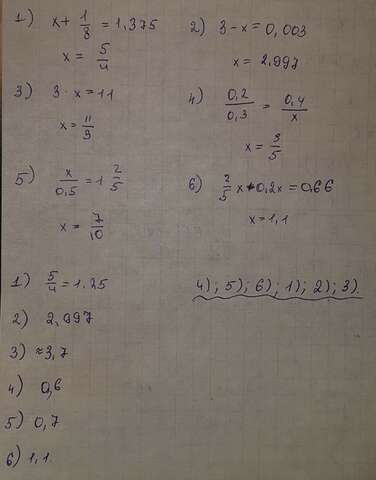 1) x + 1/8 = 1,375
x = 5/4
2) 3 - x = 0,003
x = 2,997
3) 3 · x = 11
x = 11/3
4) 0,2/0,3 = 0,4/x
x = 3/5
5) x/0,5 = 1 2/5
x = 7/10
6) 2/5 x + 0,2x = 0,66
x = 1,1
1) 5/4 = 1.25
2) 2,997
3) ≈3,7
4) 0,6
5) 0,7
6) 1,1.
4); 5); 6); 1); 2); 3).